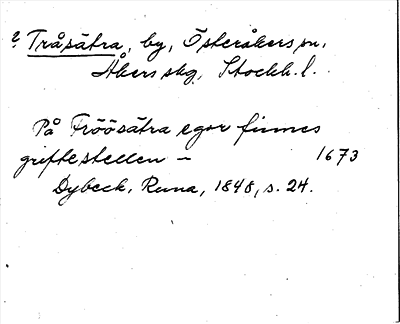 ? Tråsätra, by, Österåkers sn.
Åkers skg, Stockh. l.
På Fröösätra egor finnes
griftestellen – 1673
Dybeck, Runa, 1848, s. 24.